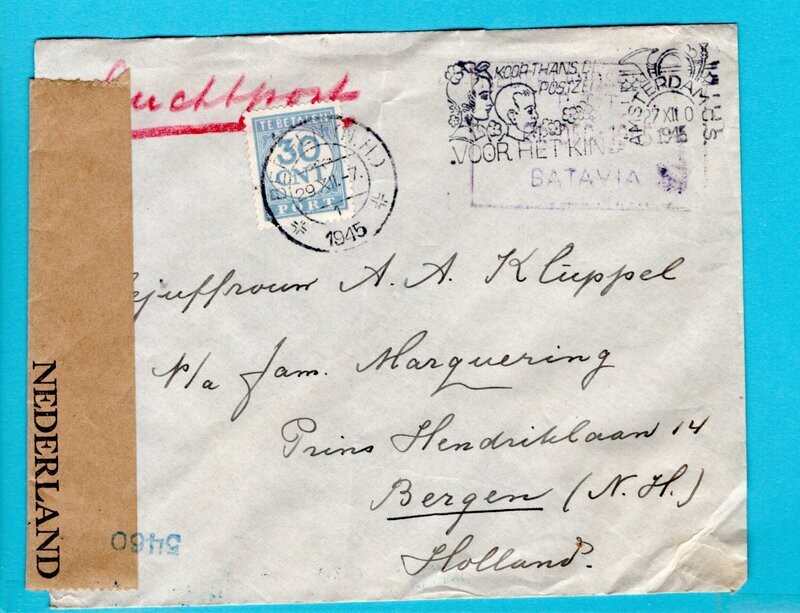 Luchtpost
TE BETALEN
30
CNT
PORT
29 XII - 7
1945
KOOP THANS DE
POSTZE
VOOR HET KIND
AMSTERDAM
27 XII 0
1945
BATAVIA
ejuffrouw A. A. Klüppel
p/a fam. Marquering
Prins Hendriklaan 14
Bergen (N.H.)
Holland.
NEDERLAND
5460